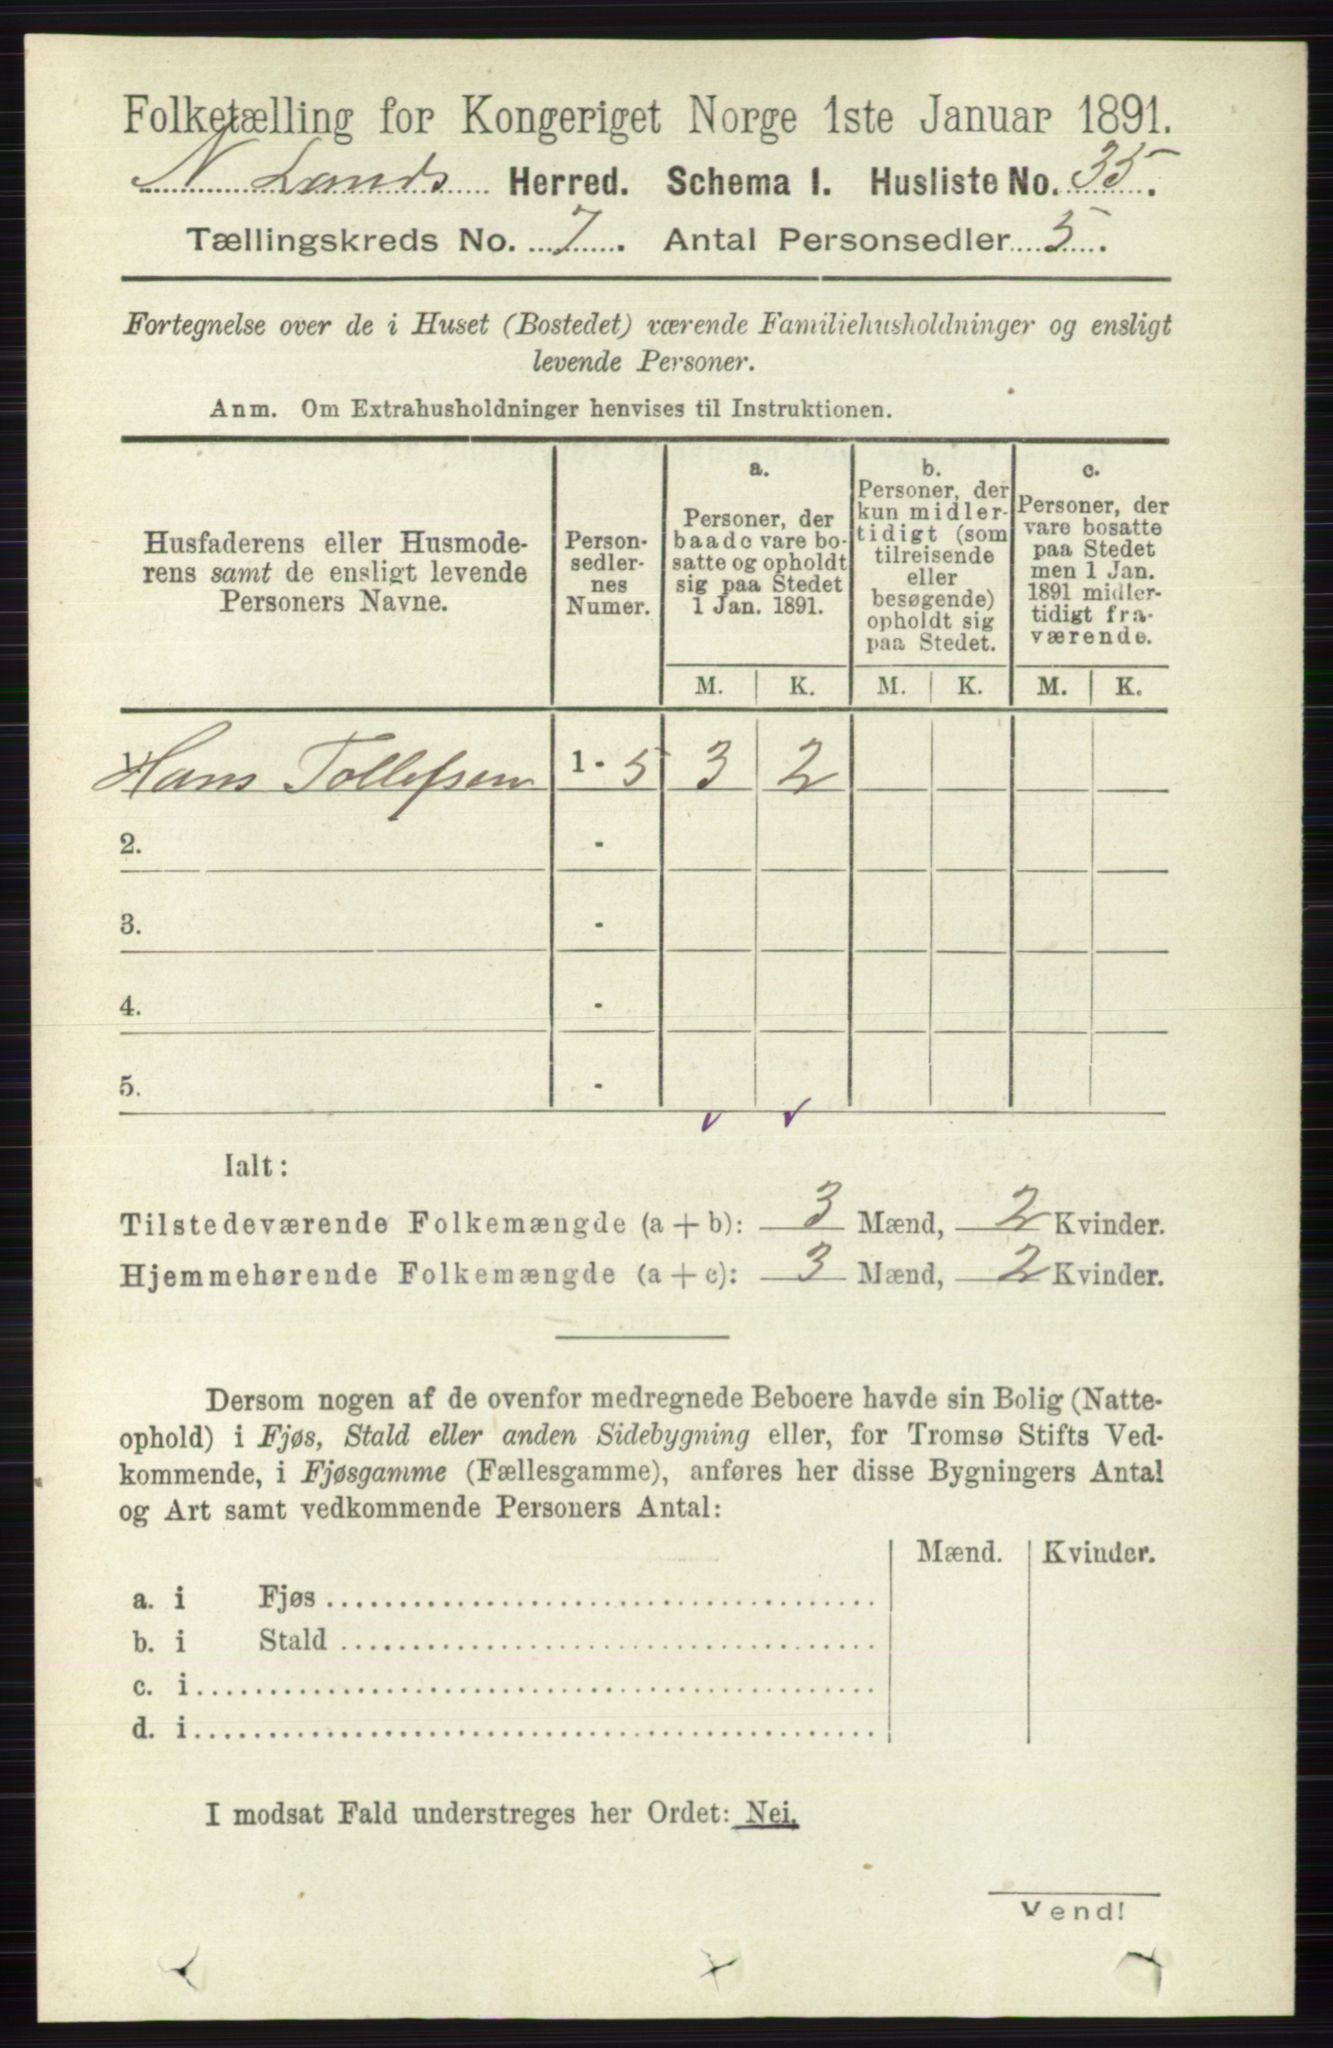 Folketælling for Kongeriget Norge 1ste Januar 1891.
N Lands Herred. Schema I. Husliste No. 35.
Tællingskreds No. 7. Antal Personsedler 5.
Fortegnelse over de i Huset (Bostedet) værende Familiehusholdninger og ensligt
levende Personer.
Anm. Om Extrahusholdninger henvises til Instruktionen.
Husfaderens eller Husmode-
rens samt de ensligt levende
Personers Navne.
Person-
sedler-
nes
Numer.
a.
Personer, der
baade vare bo-
satte og opholdt
sig paa Stedet
1 Jan. 1891.
b.
Personer, der
kun midler-
tidigt (som
tilreisende
eller
besøgende)
opholdt sig
paa Stedet.
c.
Personer, der
vare bosatte
paa Stedet
men 1 Jan.
1891 midler-
tidigt fra-
værende.
M. K. M. K. M. K.
Hans Tollefsen 1 - 5 3 2
2. -
3. -
4. -
5. -
Ialt:
Tilstedeværende Folkemængde (a + b): 3 Mænd, 2 Kvinder.
Hjemmehørende Folkemængde (a + c): 3 Mænd, 2 Kvinder.
Dersom nogen af de ovenfor medregnede Beboere havde sin Bolig (Natte-
ophold) i Fjøs, Stald eller anden Sidebygning eller, for Tromsø Stifts Ved-
kommende, i Fjøsgamme (Fællesgamme), anføres her disse Bygningers Antal
og Art samt vedkommende Personers Antal:
Mænd. Kvinder.
a. i Fjøs
b. i Stald
c. i
d. i
I modsat Fald understreges her Ordet: Nei.
Vend!